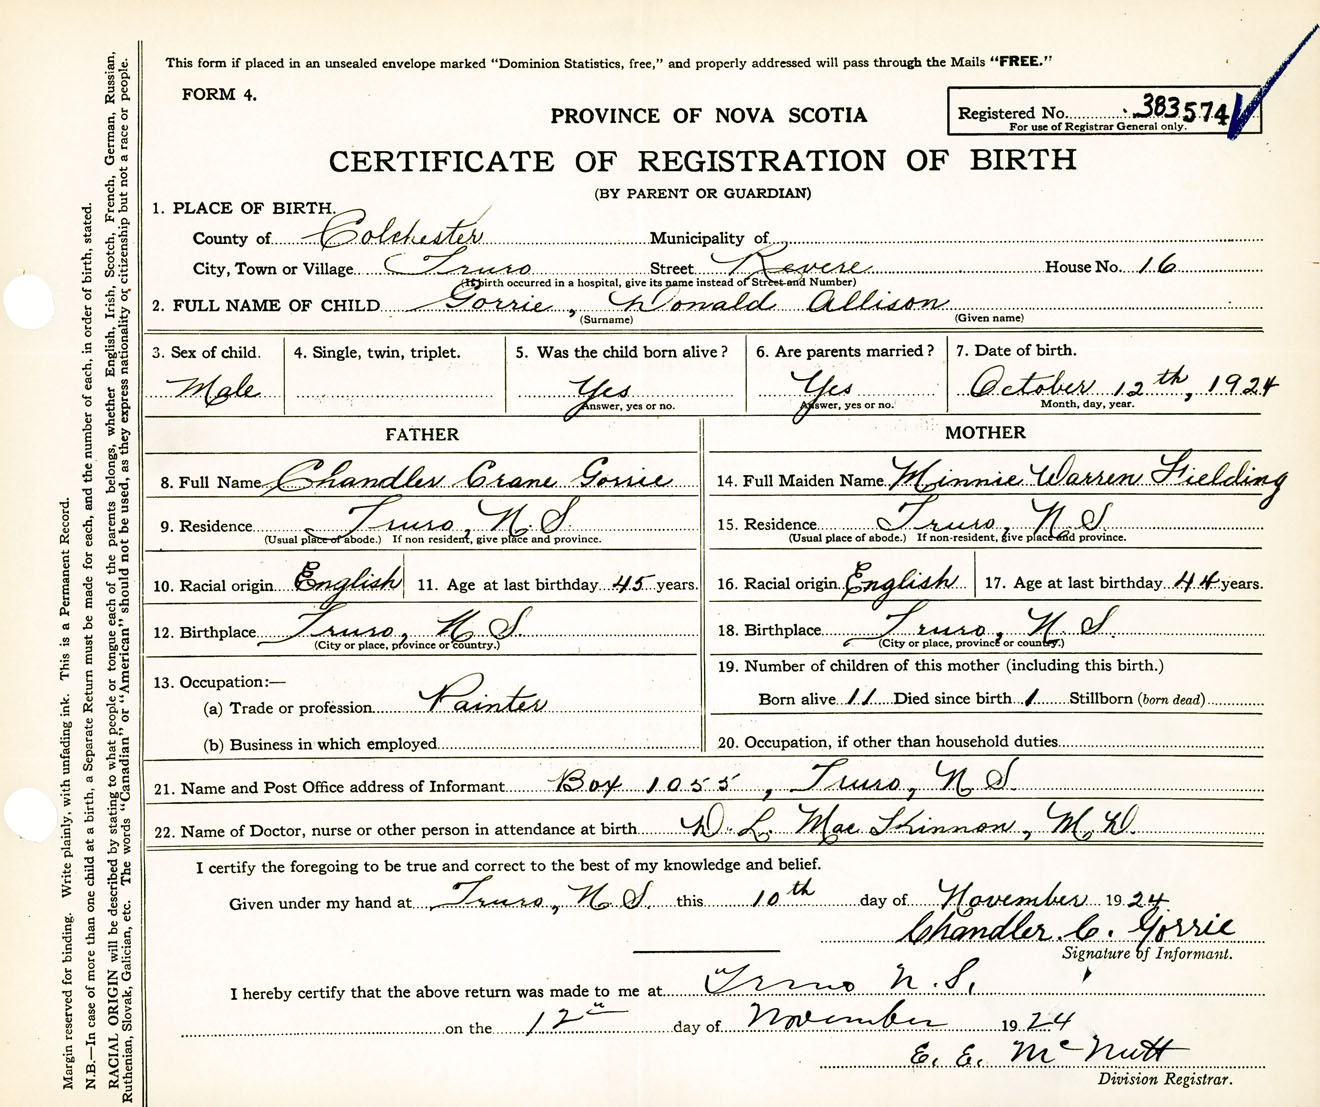 This form if placed in an unsealed envelope marked "Dominion Statistics, free," and properly addressed will pass through the Mails "FREE."
FORM 4.
PROVINCE OF NOVA SCOTIA
Registered No. 383574
For use of Registrar General only.
CERTIFICATE OF REGISTRATION OF BIRTH
(BY PARENT OR GUARDIAN)
1. PLACE OF BIRTH.
County of Colchester Municipality of
City, Town or Village Truro Street Revere House No. 16
(If birth occurred in a hospital, give its name instead of Street and Number)
2. FULL NAME OF CHILD Gorrie, Donald Allison
(Surname) (Given name)
3. Sex of child. 4. Single, twin, triplet. 5. Was the child born alive? 6. Are parents married? 7. Date of birth.
Male Yes Yes October 12th, 1924
Answer, yes or no. Answer, yes or no. Month, day, year.
FATHER
8. Full Name Chandler Crane Gorrie
9. Residence Truro, N.S.
(Usual place of abode.) If non resident, give place and province.
10. Racial origin English 11. Age at last birthday 45 years.
12. Birthplace Truro, N.S.
(City or place, province or country.)
13. Occupation:—
(a) Trade or profession Painter
(b) Business in which employed
MOTHER
14. Full Maiden Name Minnie Warren Fielding
15. Residence Truro, N.S.
(Usual place of abode.) If non-resident, give place and province.
16. Racial origin English 17. Age at last birthday 44 years.
18. Birthplace Truro, N.S.
(City or place, province or country.)
19. Number of children of this mother (including this birth.)
Born alive 11 Died since birth 1 Stillborn (born dead)
20. Occupation, if other than household duties
21. Name and Post Office address of Informant Box 1055, Truro, N.S.
22. Name of Doctor, nurse or other person in attendance at birth D. L. MacKinnon, M.D.
I certify the foregoing to be true and correct to the best of my knowledge and belief.
Given under my hand at Truro, N.S. this 10th day of November 1924
Chandler C. Gorrie
Signature of Informant.
I hereby certify that the above return was made to me at Truro N.S.
on the 12th day of November 1924
E. E. McNutt
Division Registrar.
Margin reserved for binding. Write plainly, with unfading ink. This is a Permanent Record.
N.B.—In case of more than one child at a birth, a Separate Return must be made for each, and the number of each, in order of birth, stated.
RACIAL ORIGIN will be described by stating to what people or tongue each of the parents belongs, whether English, Irish, Scotch, French, German, Russian,
Ruthenian, Slovak, Galician, etc. The words "Canadian" or "American" should not be used, as they express nationality or citizenship but not a race or people.